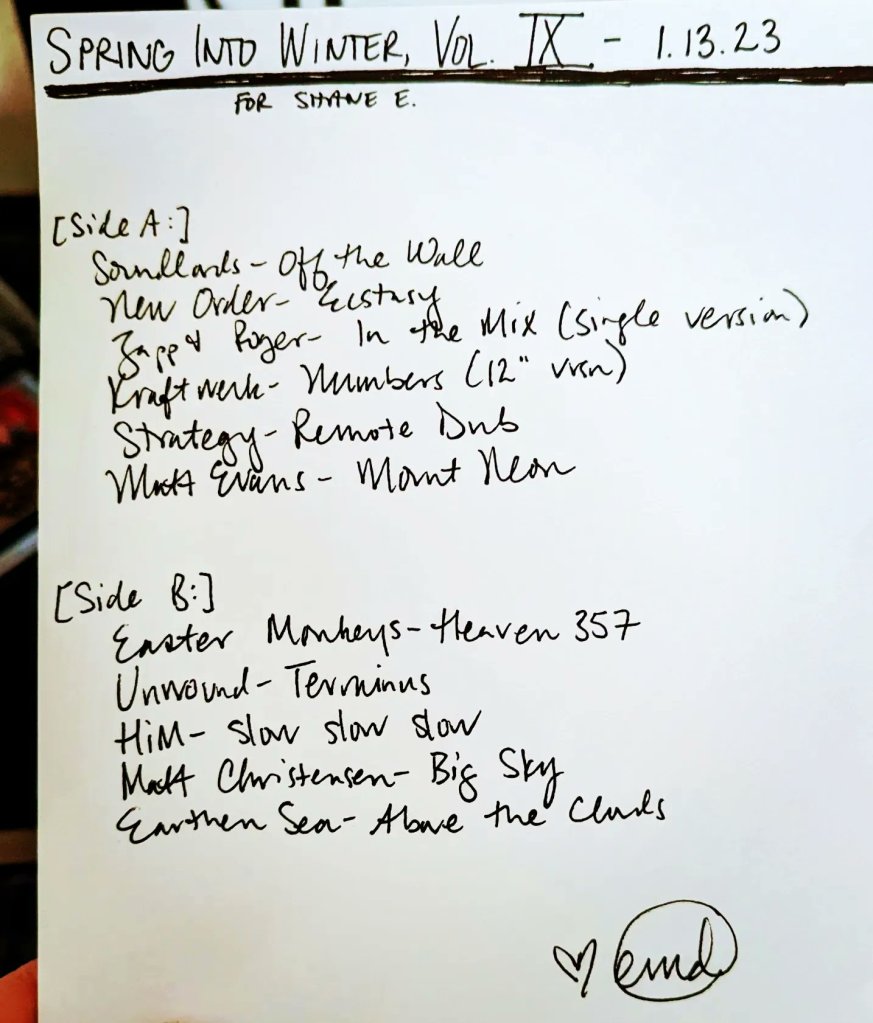 SPRING INTO WINTER, VOL. IX - 1.13.23
FOR SHANE E.
[Side A:]
Soundlords - Off the Wall
New Order - Ecstasy
Zapp & Roger - In the Mix (single version)
Kraftwerk - Numbers (12" vrsn)
Strategy - Remote Dub
Matt Evans - Mount Neon
[Side B:]
Easter Monkeys - Heaven 357
Unwound - Terminus
HiM - slow slow slow
Matt Christensen - Big Sky
Earthen Sea - Above the Clouds
♡ emd